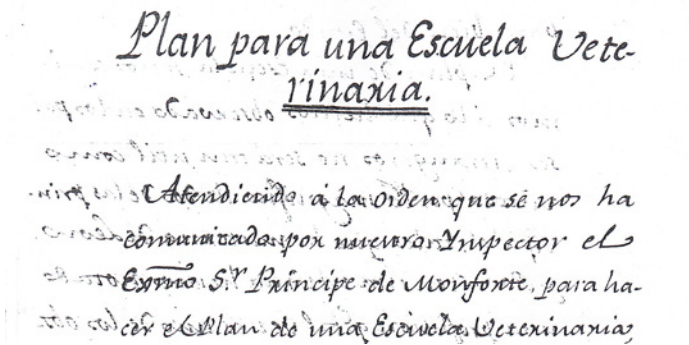 Plan para una Escuela Vete-
rinaria.
Atendiendo á la orden que se nos ha
comunicado por nuestro Ynspector el
Exmo Sr Príncipe de Monforte, para ha-
cer el Plan de una Escuela Veterinaria,